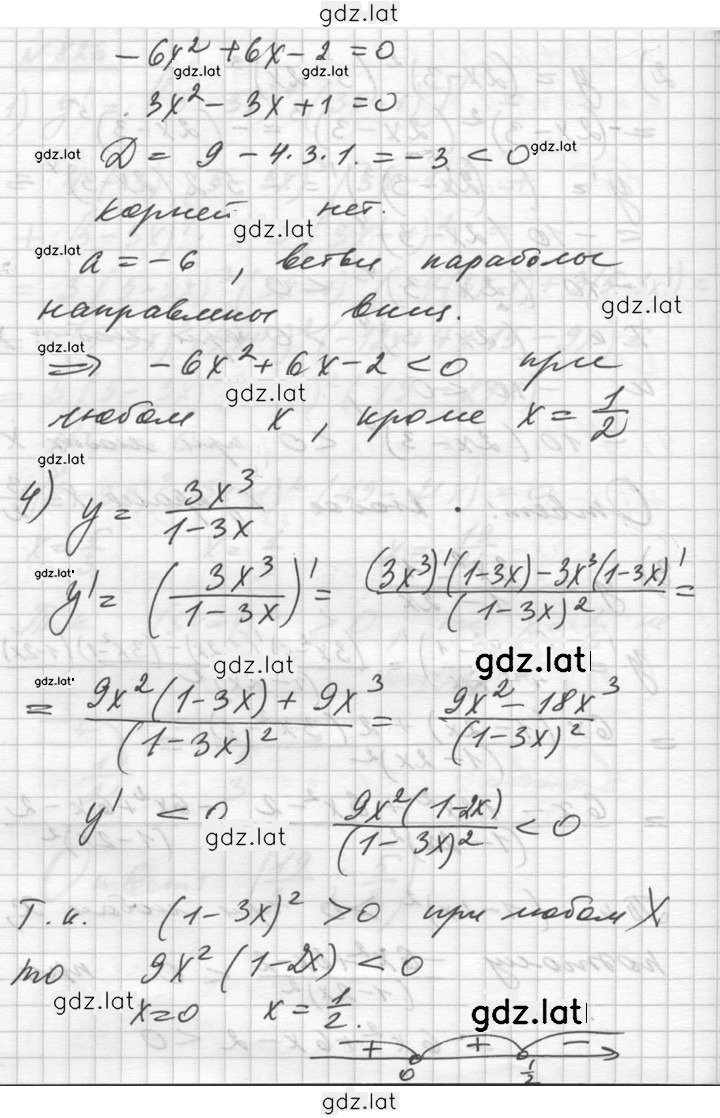 gdz.lat
-6x² + 6x - 2 = 0
gdz.lat gdz.lat
3x² - 3x + 1 = 0
gdz.lat D = 9 - 4·3·1 = -3 < 0 gdz.lat
корней нет.
gdz.lat
gdz.lat a = -6, ветви параболы
направлены вниз. gdz.lat
gdz.lat
=> -6x² + 6x - 2 < 0 при
gdz.lat
любом x, кроме x = 1/2
gdz.lat
4) y = 3x³/(1-3x)
gdz.lat
y' = (3x³/(1-3x))' = ((3x³)'(1-3x) - 3x³(1-3x)')/(1-3x)² =
gdz.lat gdz.lat
gdz.lat
= (9x²(1-3x) + 9x³)/(1-3x)² = (9x² - 18x³)/(1-3x)²
y' < 0 9x²(1-2x)/(1-3x)² < 0
gdz.lat
Т.к. (1-3x)² > 0 при любом X
то 9x²(1-2x) < 0
gdz.lat x=0 x = 1/2. gdz.lat
+ + -
0 1/2
gdz.lat